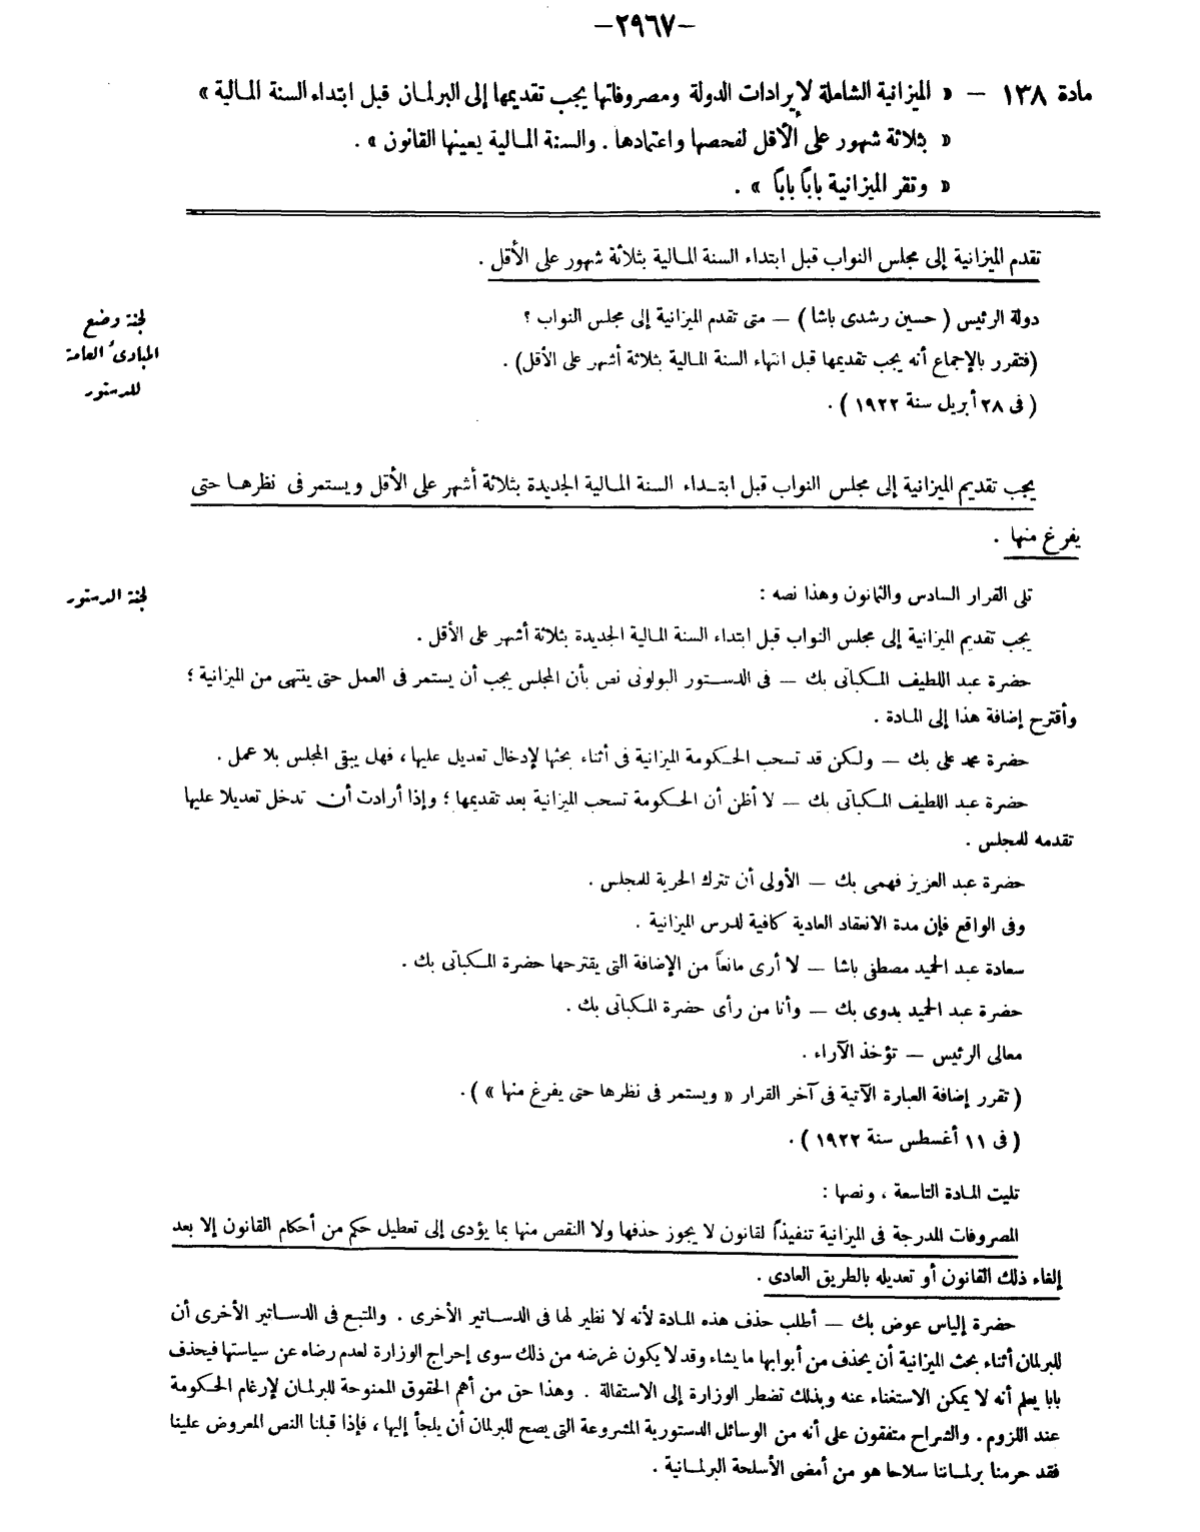 —٢٩٦٧—
مادة ١٣٨ — « الميزانية الشاملة لإيرادات الدولة ومصروفاتها يجب تقديمها إلى البرلمان قبل ابتداء السنة المالية »
« بثلاثة شهور على الأقل لفحصها واعتمادها . والسنة المالية يعينها القانون » .
« وتقر الميزانية باباً باباً » .
تقدم الميزانية إلى مجلس النواب قبل ابتداء السنة المالية بثلاثة شهور على الأقل .
لجنة وضع
المبادئ العامة
للدستور
دولة الرئيس ( حسين رشدى باشا ) — متى تقدم الميزانية إلى مجلس النواب ؟
(فتقرر بالإجماع أنه يجب تقديمها قبل انتهاء السنة المالية بثلاثة أشهر على الأقل) .
( فى ٢٨ أبريل سنة ١٩٢٢ ) .
يجب تقديم الميزانية إلى مجلس النواب قبل ابتداء السنة المالية الجديدة بثلاثة أشهر على الأقل ويستمر فى نظرها حتى
يفرغ منها .
لجنة الدستور
تلى القرار السادس والثمانون وهذا نصه :
يجب تقديم الميزانية إلى مجلس النواب قبل ابتداء السنة المالية الجديدة بثلاثة أشهر على الأقل .
حضرة عبد اللطيف المكباتى بك — فى الدستور البولونى نص بأن المجلس يجب أن يستمر فى العمل حتى ينتهى من الميزانية ؛
وأقترح إضافة هذا إلى المادة .
حضرة محمد على بك — ولكن قد تسحب الحكومة الميزانية فى أثناء بحثها لإدخال تعديل عليها ، فهل يبقى المجلس بلا عمل .
حضرة عبد اللطيف المكباتى بك — لا أظن أن الحكومة تسحب الميزانية بعد تقديمها ؛ وإذا أرادت أن تدخل تعديلا عليها
تقدمه للمجلس .
حضرة عبد العزيز فهمى بك — الأولى أن تترك الحرية للمجلس .
وفى الواقع فإن مدة الانعقاد العادية كافية لدرس الميزانية .
سعادة عبد الحميد مصطفى باشا — لا أرى مانعاً من الإضافة التى يقترحها حضرة المكباتى بك .
حضرة عبد الحميد بدوى بك — وأنا من رأى حضرة المكباتى بك .
معالى الرئيس — تؤخذ الآراء .
( تقرر إضافة العبارة الآتية فى آخر القرار « ويستمر فى نظرها حتى يفرغ منها » ) .
( فى ١١ أغسطس سنة ١٩٢٢ ) .
تليت المادة التاسعة ، ونصها :
المصروفات المدرجة فى الميزانية تنفيذاً لقانون لا يجوز حذفها ولا النقص منها بما يؤدى إلى تعطيل حكم من أحكام القانون إلا بعد
إلغاء ذلك القانون أو تعديله بالطريق العادى .
حضرة إلياس عوض بك — أطلب حذف هذه المادة لأنه لا نظير لها فى الدساتير الأخرى . والمتبع فى الدساتير الأخرى أن
للبرلمان أثناء بحث الميزانية أن يحذف من أبوابها ما يشاء وقد لا يكون غرضه من ذلك سوى إحراج الوزارة لعدم رضاه عن سياستها فيحذف
بابا يعلم أنه لا يمكن الاستغناء عنه وبذلك تضطر الوزارة إلى الاستقالة . وهذا حق من أهم الحقوق الممنوحة للبرلمان لإرغام الحكومة
عند اللزوم . والشراح متفقون على أنه من الوسائل الدستورية المشروعة التى يصح للبرلمان أن يلجأ إليها ، فإذا قبلنا النص المعروض علينا
فقد حرمنا برلماننا سلاحا هو من أمضى الأسلحة البرلمانية .